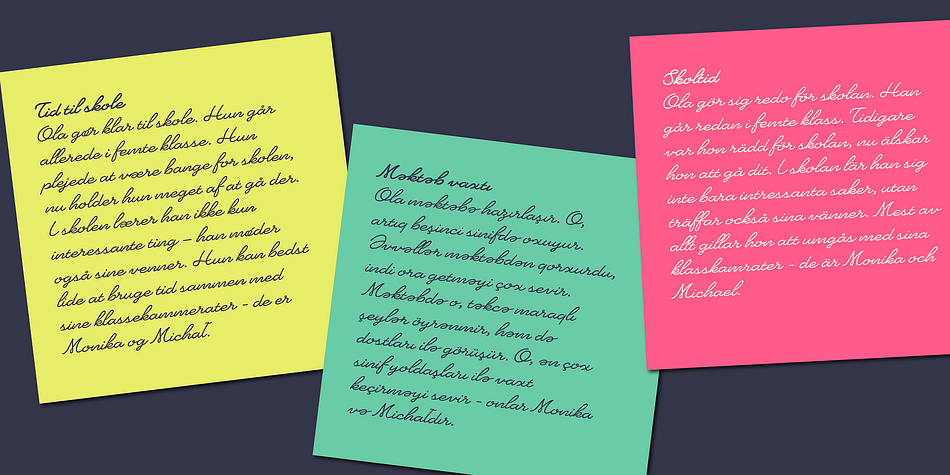 Tid til skole
Ola gør klar til skole. Hun går
allerede i femte klasse. Hun
plejede at være bange for skolen,
nu holder hun meget af at gå der.
I skolen lærer han ikke kun
interessante ting – han møder
også sine venner. Hun kan bedst
lide at bruge tid sammen med
sine klassekammerater - de er
Monika og Michał.
Məktəb vaxtı
Ola məktəbə hazırlaşır. O,
artıq beşinci sinifdə oxuyur.
Əvvəllər məktəbdən qorxurdu,
indi ora getməyi çox sevir.
Məktəbdə o, təkcə maraqlı
şeylər öyrənmir, həm də
dostları ilə görüşür. O, ən çox
sinif yoldaşları ilə vaxt
keçirməyi sevir - onlar Monika
və Michałdır.
Skoltid
Ola gör sig redo för skolan. Han
går redan i femte klass. Tidigare
var hon rädd för skolan, nu älskar
hon att gå dit. I skolan lär han sig
inte bara intressanta saker, utan
träffar också sina vänner. Mest av
allt gillar hon att umgås med sina
klasskamrater - de är Monika och
Michael.